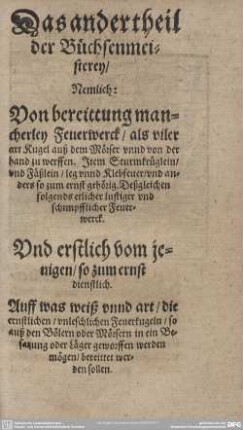 Das andertheil
der Büchsenmei-
sterey/
Nemlich:
Von bereittung man-
cherley Feuerwerck/ als viler
art Kugel auß dem Mörser vnnd von der
hand zu werffen. Item Sturmkrüglein/
vnd Fäßlein/ leg vnnd Klebfeuer/vnd an-
ders so zum ernst gehörig. Deßgleichen
folgends etlicher lustiger vnd
schimpfflicher Feuer-
werck.
Vnd erstlich vom je-
nigen/ so zum ernst
dienstlich.
Auff was weiß vnnd art/ die
ernstlichen/ vnleschlichen Feuerkugeln/ so
auß den Bölern oder Mörsern in ein Be-
satzung oder Läger geworffen werden
mögen/ bereittet wer-
den sollen.